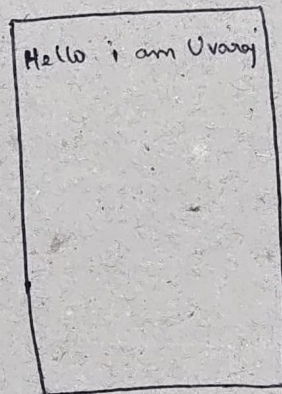 Hello i am Uvaraj